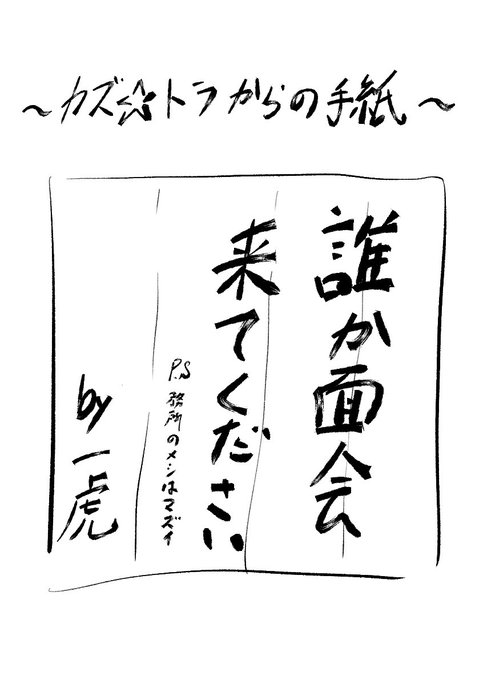 ～カズ☆トラからの手紙～
誰か面会
来てください
P.S 務所のメシはマズイ
by 一虎